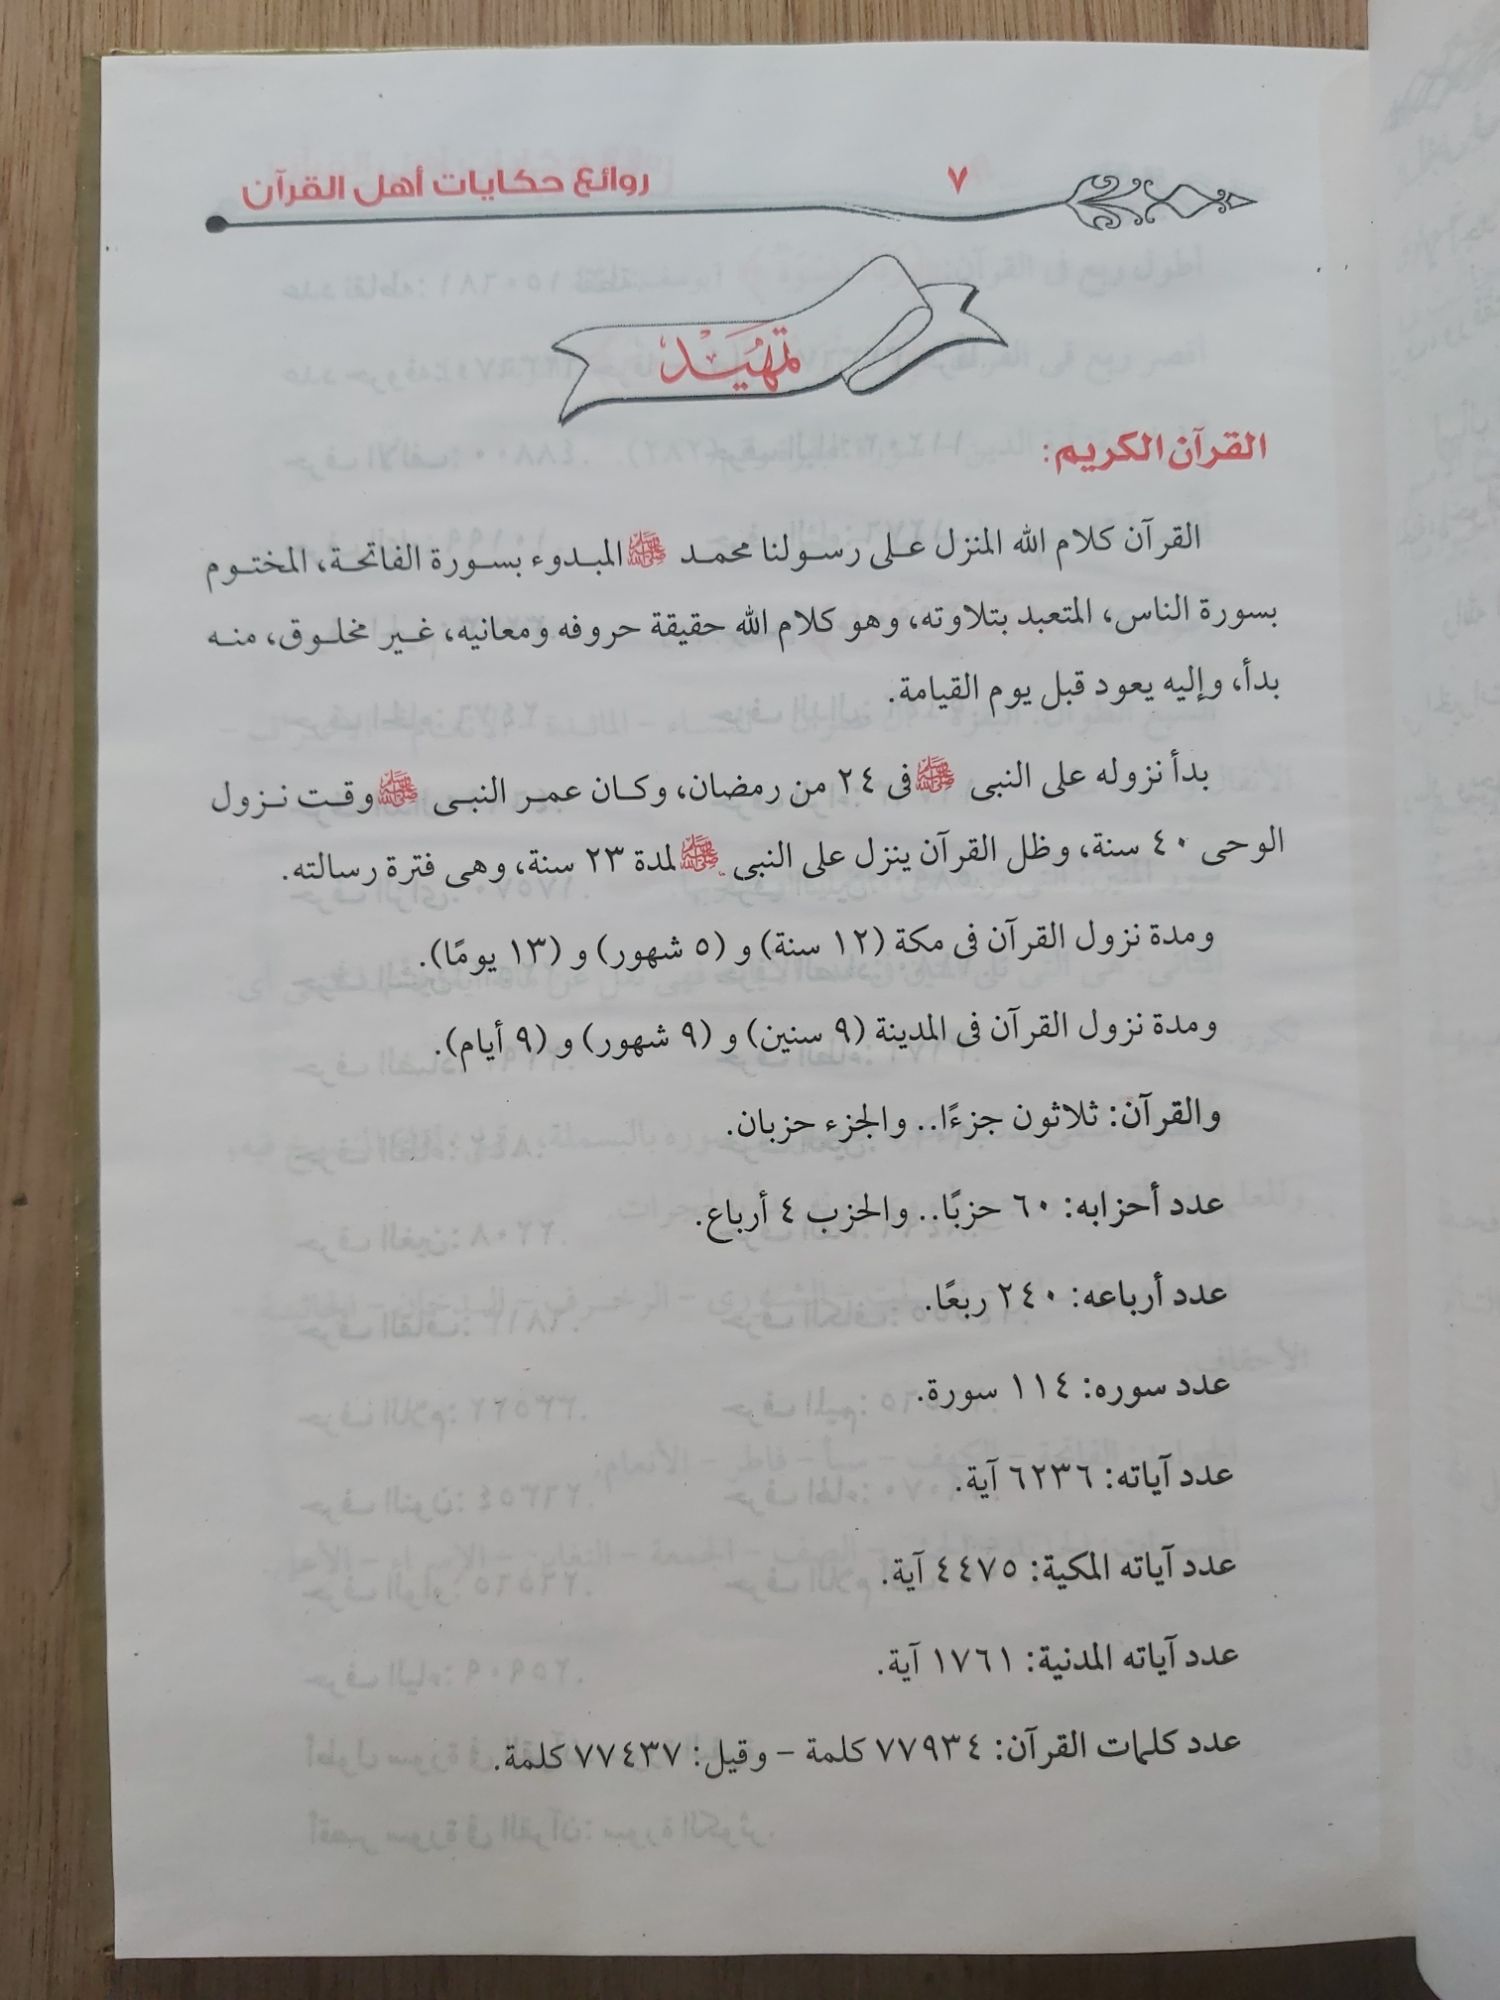 روائع حكايات أهل القرآن ٧
تمهيد
القرآن الكريم:
القرآن كلام الله المنزل على رسولنا محمد ﷺ المبدوء بسورة الفاتحة، المختوم
بسورة الناس، المتعبد بتلاوته، وهو كلام الله حقيقة حروفه ومعانيه، غير مخلوق، منه
بدأ، وإليه يعود قبل يوم القيامة.
بدأ نزوله على النبى ﷺ فى ٢٤ من رمضان، وكان عمر النبى ﷺ وقت نزول
الوحى ٤٠ سنة، وظل القرآن ينزل على النبى ﷺ لمدة ٢٣ سنة، وهى فترة رسالته.
ومدة نزول القرآن فى مكة (١٢ سنة) و (٥ شهور) و (١٣ يومًا).
ومدة نزول القرآن فى المدينة (٩ سنين) و (٩ شهور) و (٩ أيام).
والقرآن: ثلاثون جزءًا.. والجزء حزبان.
عدد أحزابه: ٦٠ حزبًا.. والحزب ٤ أرباع.
عدد أرباعه: ٢٤٠ ربعًا.
عدد سوره: ١١٤ سورة.
عدد آياته: ٦٢٣٦ آية.
عدد آياته المكية: ٤٤٧٥ آية.
عدد آياته المدنية: ١٧٦١ آية.
عدد كلمات القرآن: ٧٧٩٣٤ كلمة - وقيل: ٧٧٤٣٧ كلمة.